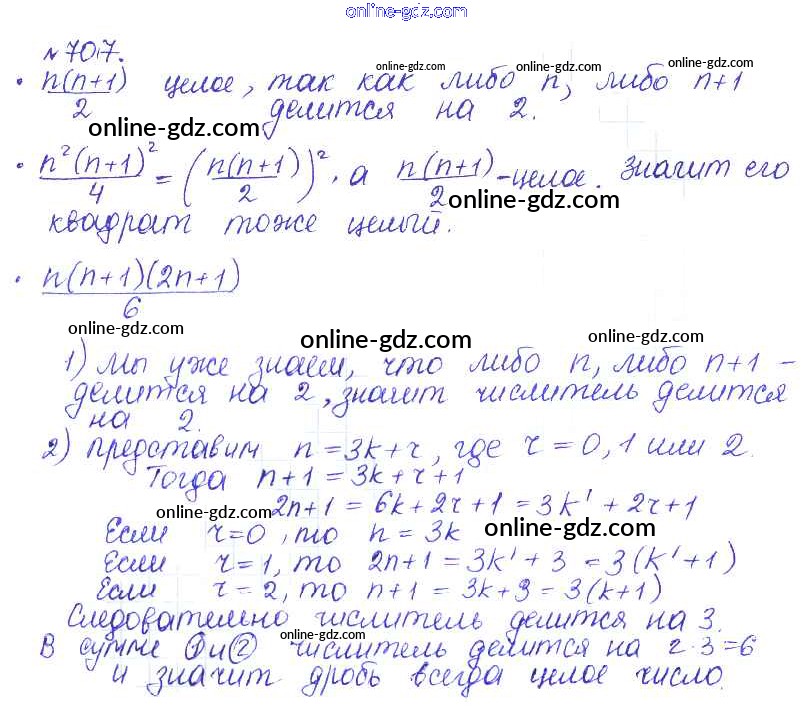 online-gdz.com
№ 707.
online-gdz.com online-gdz.com
• n(n+1)/2 целое, так как либо n, либо n+1
делится на 2.
online-gdz.com
• n²(n+1)²/4 = (n(n+1)/2)², а n(n+1)/2 - целое. Значит его
online-gdz.com
квадрат тоже целый.
• n(n+1)(2n+1)/6
online-gdz.com online-gdz.com online-gdz.com
1) Мы уже знаем, что либо n, либо n+1 -
делится на 2, значит числитель делится
на 2.
2) Представим n = 3k + r, где r = 0, 1 или 2.
Тогда n+1 = 3k + r + 1
2n+1 = 6k + 2r + 1 = 3k' + 2r + 1
online-gdz.com online-gdz.com
Если r = 0, то n = 3k
Если r = 1, то 2n+1 = 3k' + 3 = 3(k'+1)
Если r = 2, то n+1 = 3k + 3 = 3(k+1)
Следовательно числитель делится на 3.
online-gdz.com
В сумме ① и ② числитель делится на 2·3=6
и значит дробь всегда целое число.